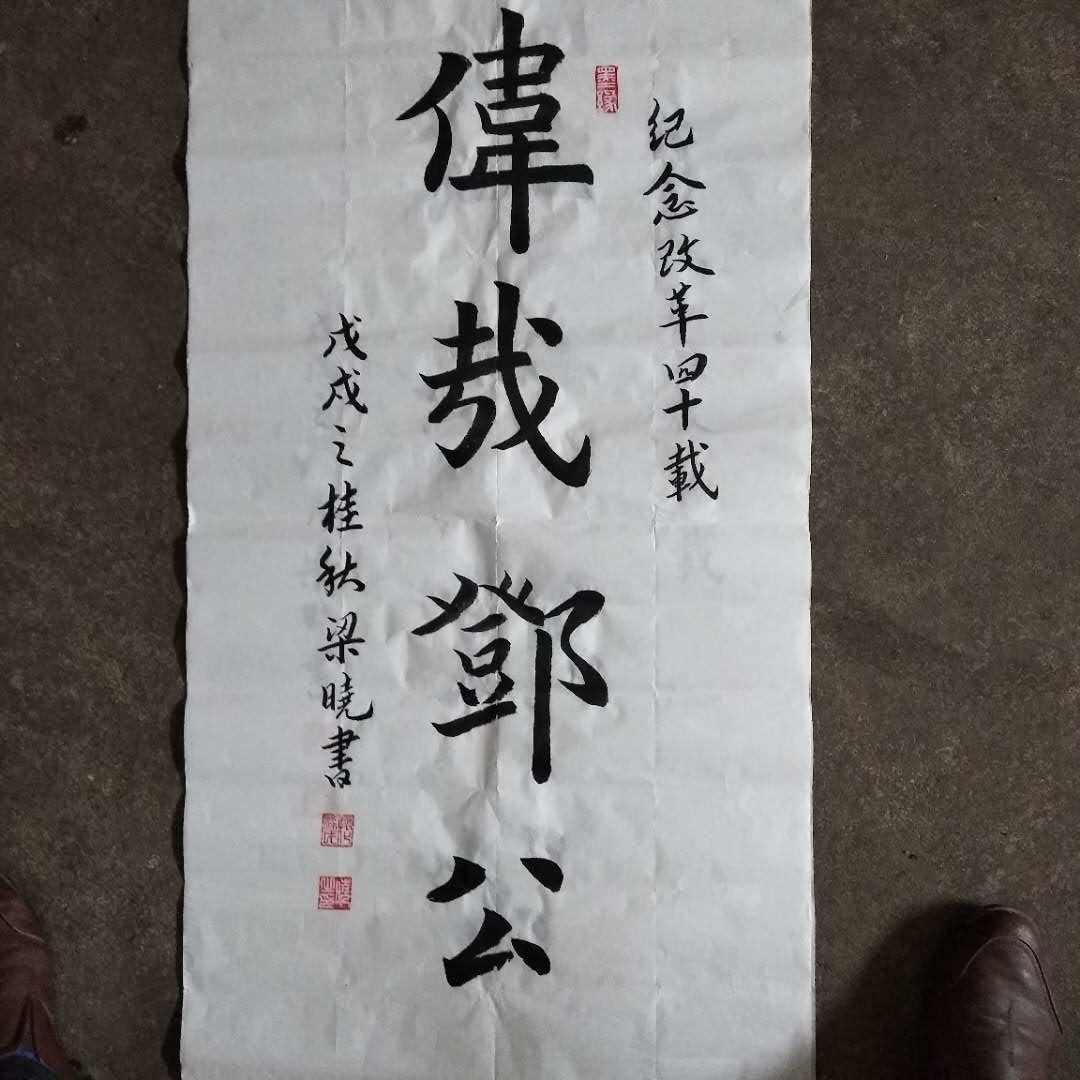 紀念改革四十載
墨緣
偉哉鄧公
戊戌之桂秋梁曉書